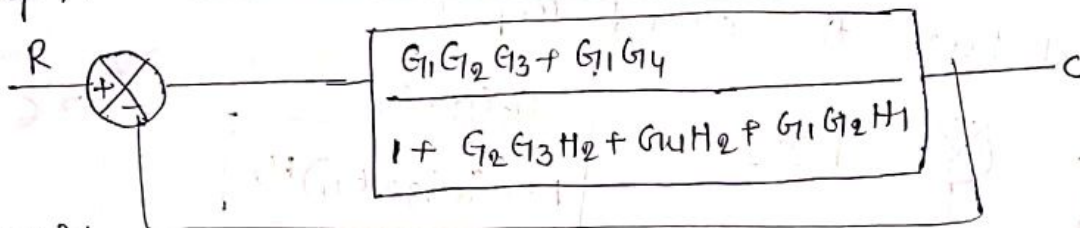 R
+
-
G1G2G3 + G1G4
1 + G2G3H2 + G4H2 + G1G2H1
C